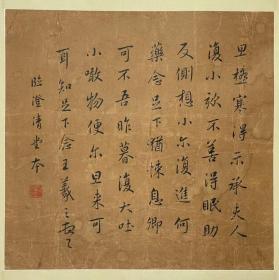 旦極寒得示承夫人
復小欬不善得眠助
反側想小尔復進何
藥念足下猶悚息卿
可不吾昨暮復大吐
小噉物便尔旦來可
耳知足下念王羲之頓
臨澄清堂本